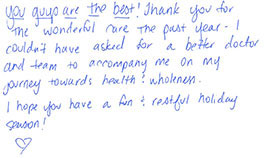 you guys are the best! Thank you for
the wonderful care the past year - I
couldn't have asked for a better doctor
and team to accompany me on my
journey towards health & wholeness.
I hope you have a fun & restful holiday
season!
♡